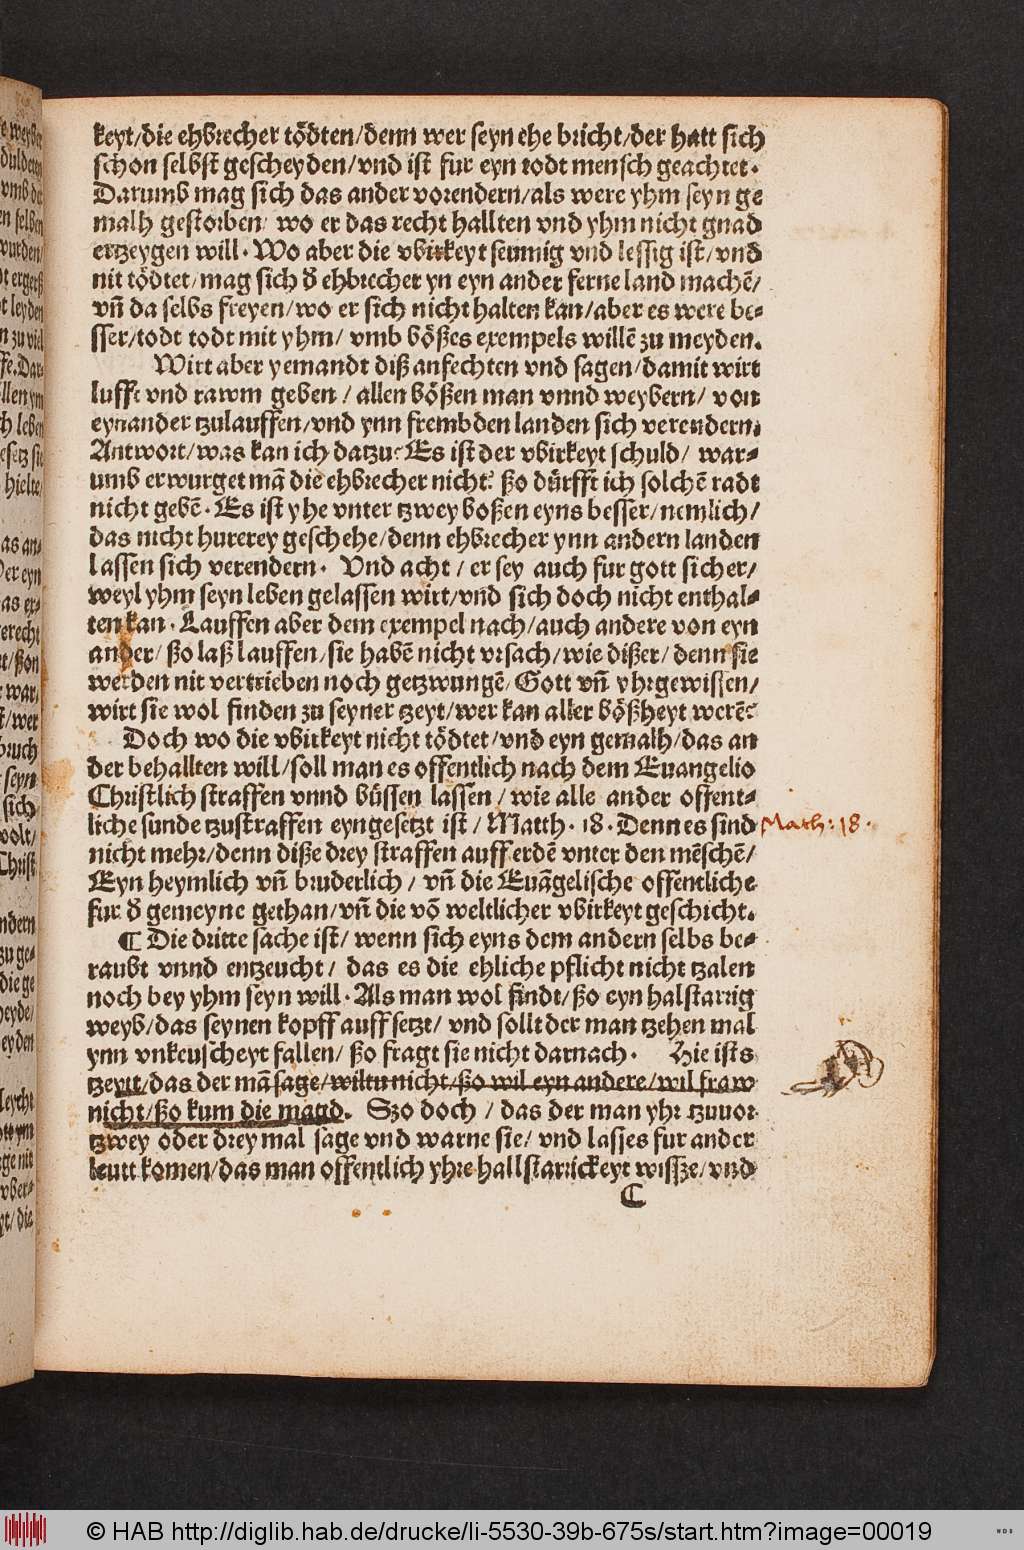 keyt/die ehbrecher tödten/denn wer seyn ehe bricht/der hatt sich
schon selbst gescheyden/vnd ist fur eyn todt mensch geachtet.
Darumb mag sich das ander vorendern/als were yhm seyn ge
malh gestorben/ wo er das recht hallten vnd yhm nicht gnad
ertzeygen will. Wo aber die vbirkeyt seumig vnd lessig ist/vnd
nit tödtet/mag sich d̕ ehbrecher yn eyn ander ferne land machē/
vn̄ da selbs freyen/wo er sich nicht halten kan/aber es were be-
sser/todt todt mit yhm/ vmb bößes exempels willē zu meyden.
Wirt aber yemandt diß anfechten vnd sagen/damit wirt
lufft vnd rawm geben/allen bößen man vnnd weybern/ von
eynander tzulauffen/vnd ynn frembden landen sich verendern.
Antwort/was kan ich datzu? Es ist der vbirkeyt schuld/ war-
umb erwurget mā die ehbrecher nicht? ßo dürfft ich solchē radt
nicht gebē. Es ist yhe vnter tzwey boßen eyns besser/nemlich/
das nicht hurerey geschehe/denn ehbrecher ynn andern landen
lassen sich verendern. Vnd acht/er sey auch fur gott sicher/
weyl yhm seyn leben gelassen wirt/vnd sich doch nicht enthal-
ten kan. Lauffen aber dem exempel nach/auch andere von eyn
ander/ ßo laß lauffen/sie habē nicht vrsach/wie dißer/denn sie
werden nit vertrieben noch getzwungē/Gott vn̄ yhr gewissen/
wirt sie wol finden zu seyner tzeyt/wer kan aller bößheyt werē?
Doch wo die vbirkeyt nicht tödtet/vnd eyn gemalh/das an
der behallten will/soll man es offentlich nach dem Euangelio
Christlich straffen vnnd büssen lassen/wie alle ander offent-
liche sunde tzustraffen eyngesetzt ist/Matth. 18. Denn es sind Math: 18.
nicht mehr/denn diße drey straffen auff erdē vnter den mēschē/
Eyn heymlich vn̄ bruderlich/vn̄ die Euāgelische offentliche
fur d̕ gemeyne gethan/vn̄ die vō weltlicher vbirkeyt geschicht.
¶ Die dritte sache ist/wenn sich eyns dem andern selbs be-
raubt vnnd entzeucht/ das es die ehliche pflicht nicht tzalen
noch bey yhm seyn will. Als man wol findt/ßo eyn halstarrig
weyb/das seynen kopff auff setzt/ vnd sollt der man tzehen mal
ynn vnkeuscheyt fallen/ ßo fragt sie nicht darnach. Hie ists
tzeytt/das der mā sage/wiltu nicht/ßo wil eyn andere/wil fraw
nicht/ßo kum die magd. Szo doch/das der man yhr tzuuor
tzwey oder drey mal sage vnd warne sie/vnd lasses fur ander
leutt komen/das man offentlich yhre hallstarrickeyt wissze/vnd
C
© HAB http://diglib.hab.de/drucke/li-5530-39b-675s/start.htm?image=00019